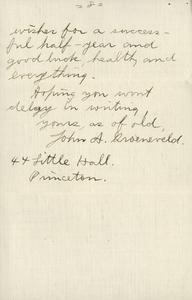 = 8 =
wishes for a success-
ful half-year and
good luck, health and
everything.
Hoping you wont
delay in writing
yours as of old,
John A. Groeneveld.
44 Little Hall.
Princeton.